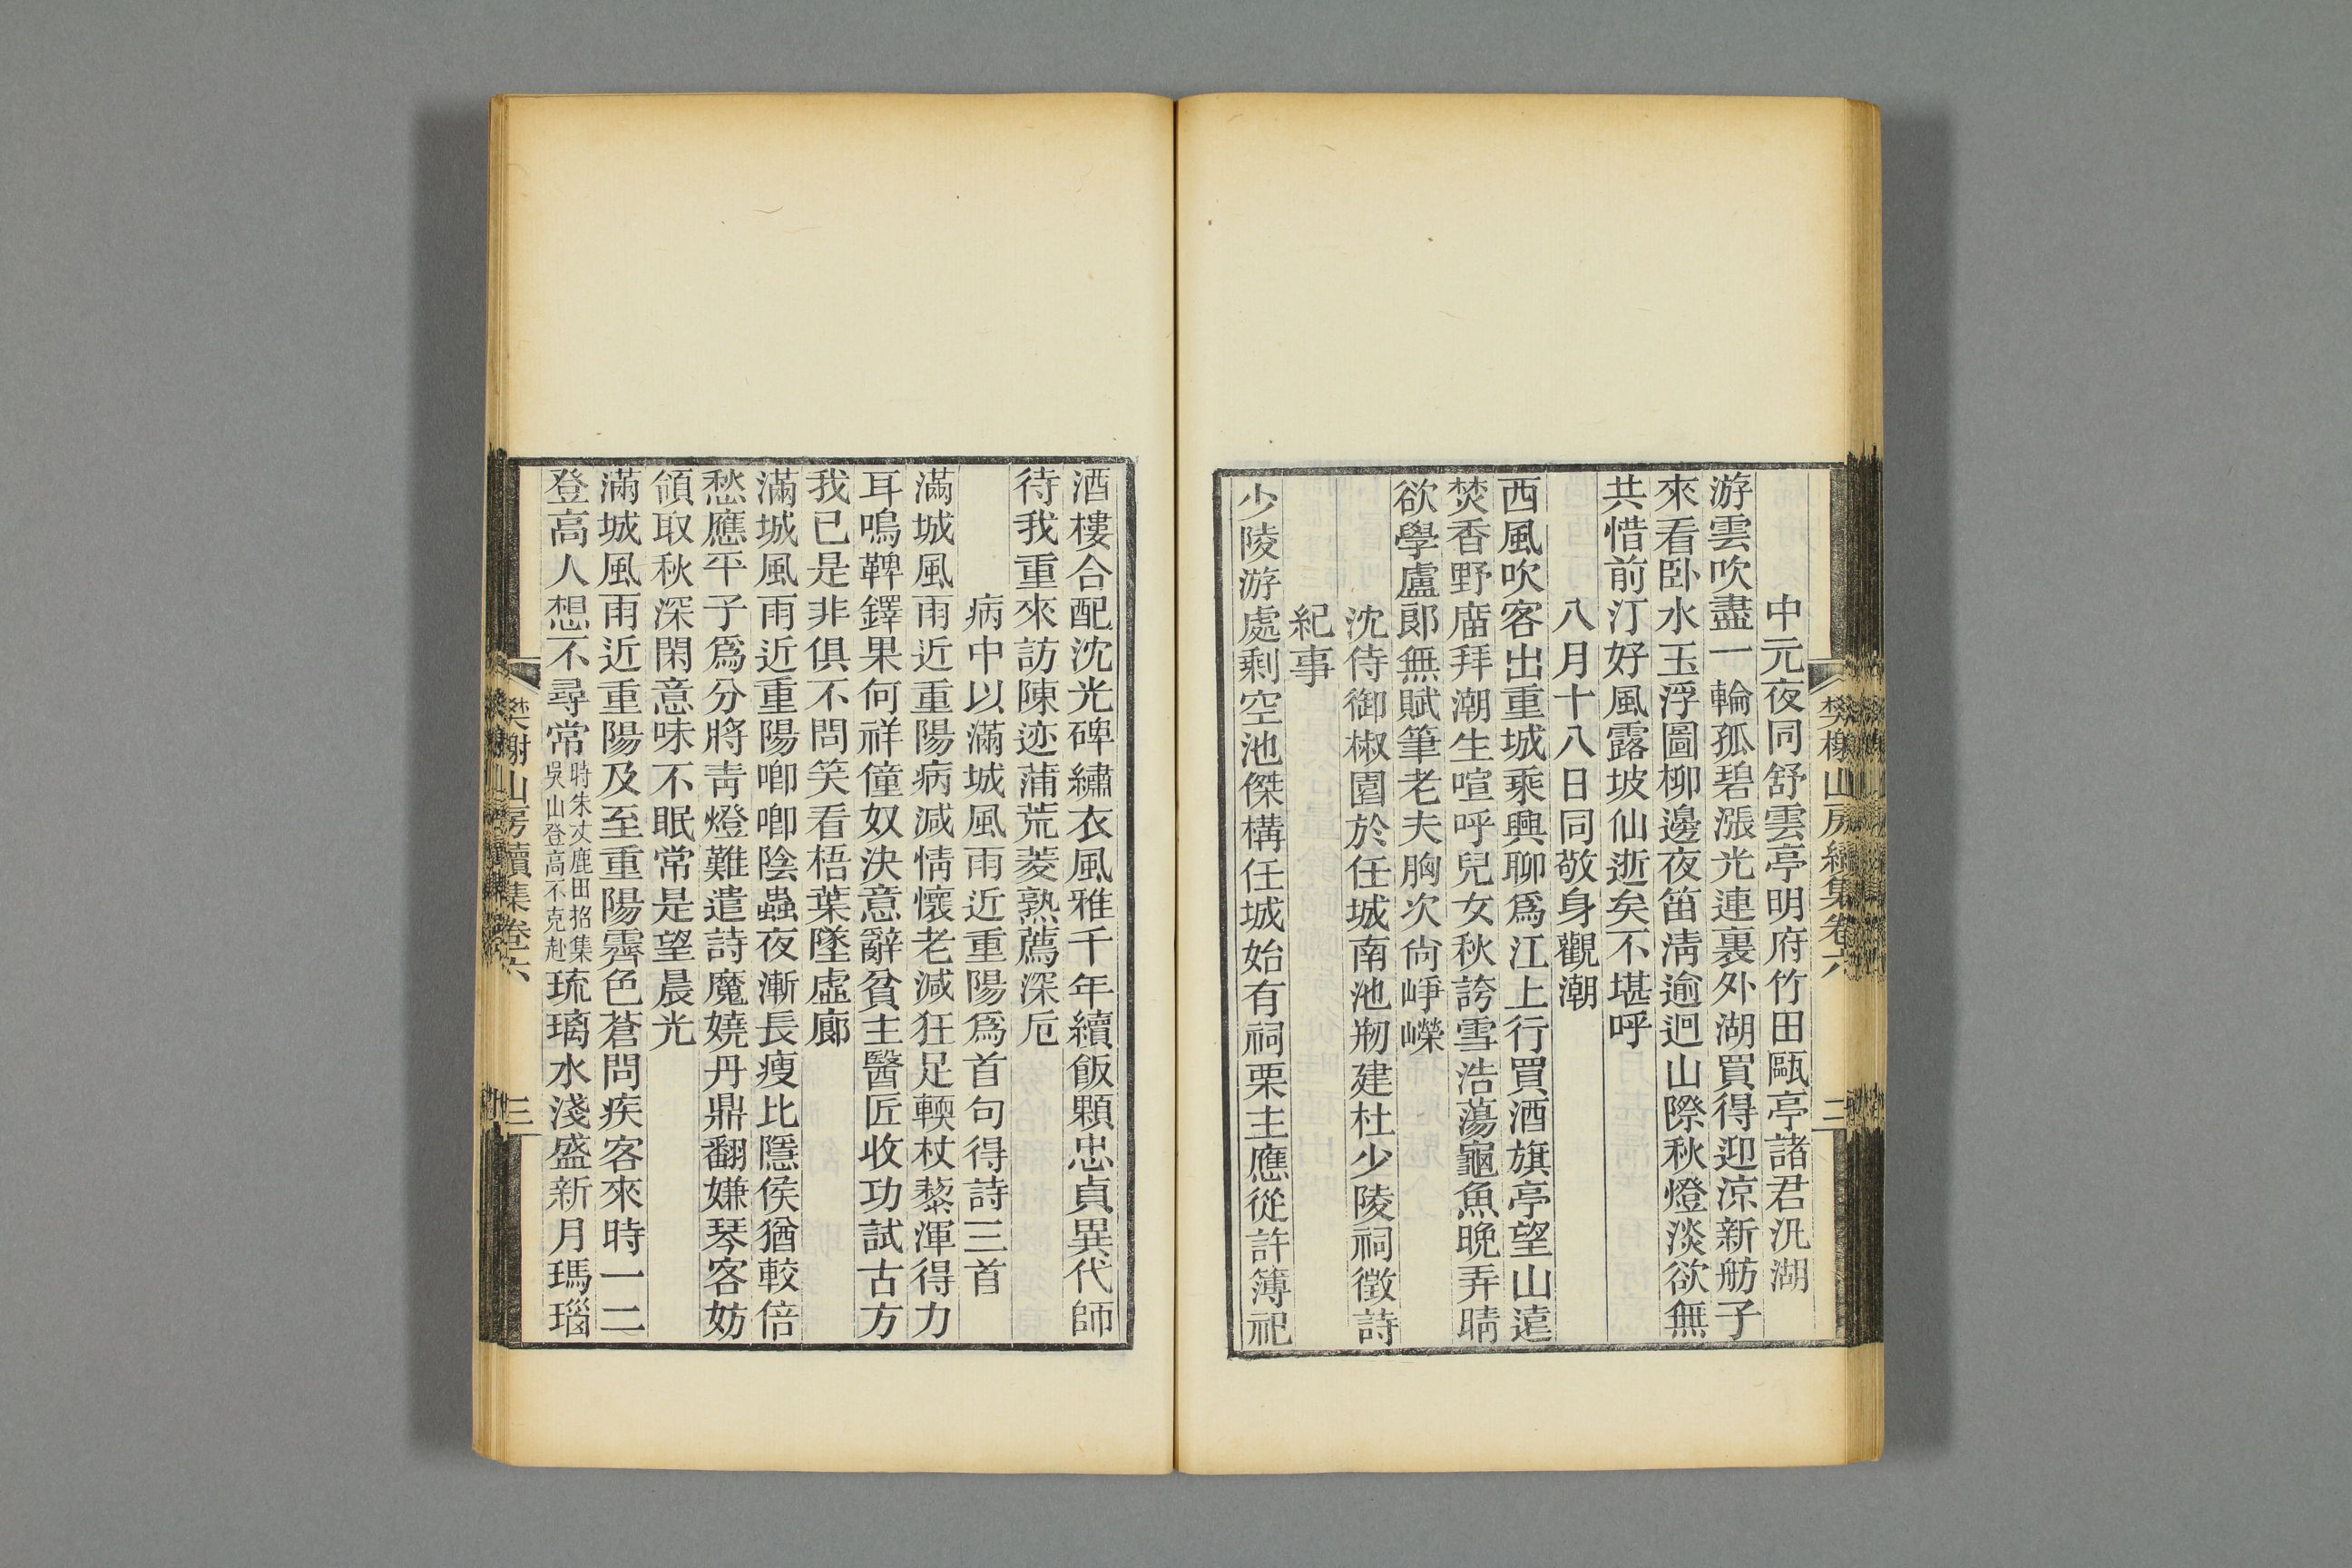 樊榭山房續集卷六
二
中元夜同舒雲亭明府竹田甌亭諸君汎湖
游雲吹盡一輪孤碧漲光連裏外湖買得迎涼新舫子
來看卧水玉浮圖柳邊夜笛清逾迥山際秋燈淡欲無
共惜前汀好風露坡仙逝矣不堪呼
八月十八日同敬身觀潮
西風吹客出重城乘興聊爲江上行買酒旗亭望山遠
焚香野庿拜潮生喧呼兒女秋誇雪浩蕩龜魚晚弄晴
欲學盧郎無賦筆老夫胸次尙崢嶸
沈侍御椒園於任城南池剏建杜少陵祠徵詩
紀事
少陵游處剩空池傑構任城始有祠栗主應從許簿祀
酒樓合配沈光碑繡衣風雅千年續飯顆忠貞異代師
待我重來訪陳迹蒲荒菱熟薦深卮
病中以滿城風雨近重陽爲首句得詩三首
滿城風雨近重陽病減情懷老減狂足輭杖藜渾得力
耳鳴鞞鐸果何祥僮奴決意辭貧主醫匠收功試古方
我已是非俱不問笑看梧葉墜虛廊
滿城風雨近重陽唧唧陰蟲夜漸長瘦比隱侯猶較倍
愁應平子爲分將靑燈難遣詩魔嬈丹鼎翻嫌琴客妨
領取秋深閑意味不眠常是望晨光
滿城風雨近重陽及至重陽霽色蒼問疾客來時一二
登高人想不尋常時朱丈鹿田招集吳山登高不克赴琉璃水淺盛新月瑪瑙
樊榭山房續集卷六
三